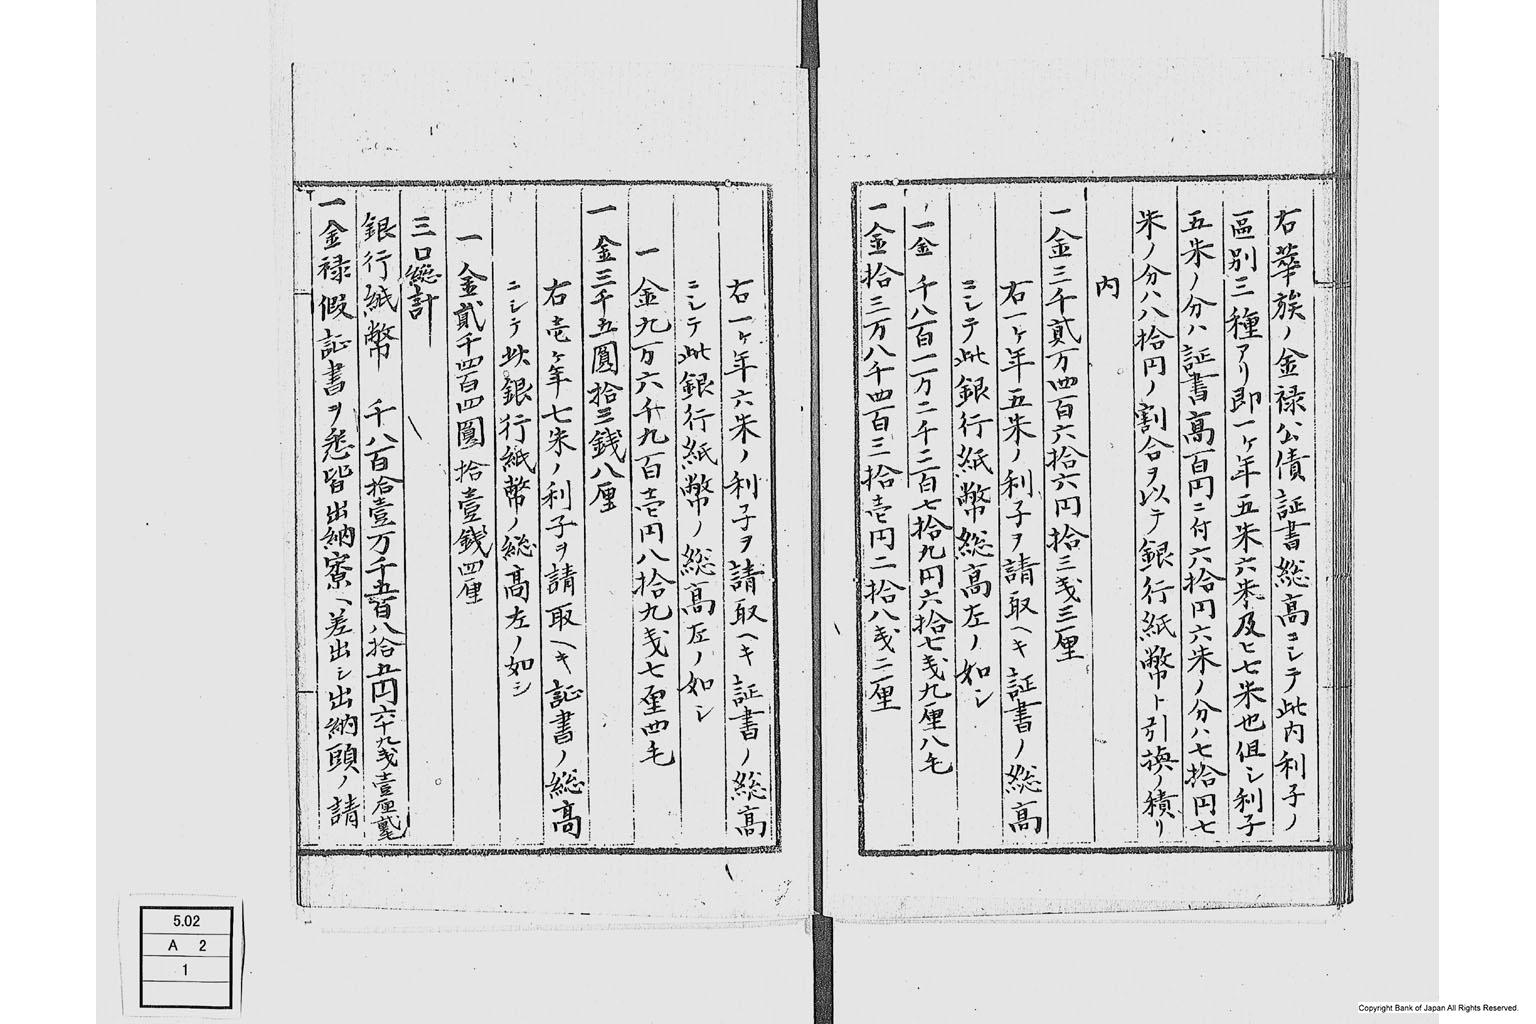 右華族ノ金禄公債証書総高ニシテ此内利子ノ
區別三種アリ即一ヶ年五朱六朱及ヒ七朱也但シ利子
五朱ノ分ハ証書高百円ニ付六拾円六朱ノ分ハ七拾円七
朱ノ分ハ八拾円ノ割合ヲ以テ銀行紙幣ト引換ノ積リ
内
一金三千貳万四百六拾六円拾三戋三厘
右一ヶ年五朱ノ利子ヲ請取ヘキ証書ノ総高
ニシテ此銀行紙幣ノ総高左ノ如シ
一金千八百二万二千二百七拾九円六拾七戋九厘八毛
一金拾三万八千四百三拾壱円二拾八戋二厘
右一ヶ年六朱ノ利子ヲ請取ヘキ証書ノ総高
ニシテ此銀行紙幣ノ総高左ノ如シ
一金九万六千九百壱円八拾九戋七厘四毛
一金三千五圓拾三錢八厘
右壱ヶ年七朱ノ利子ヲ請取ヘキ証書ノ総高
ニシテ此銀行紙幣ノ総高左ノ如シ
一金貳千四百四圓拾壹錢四厘
三口總計
銀行紙幣 千八百拾壹万千五百八拾五円六十九戋壹厘貳毛
一金禄假証書ヲ悉皆出納寮ヘ差出シ出納頭ノ請
5.02
A 2
1
Copyright Bank of Japan All Rights Reserved.